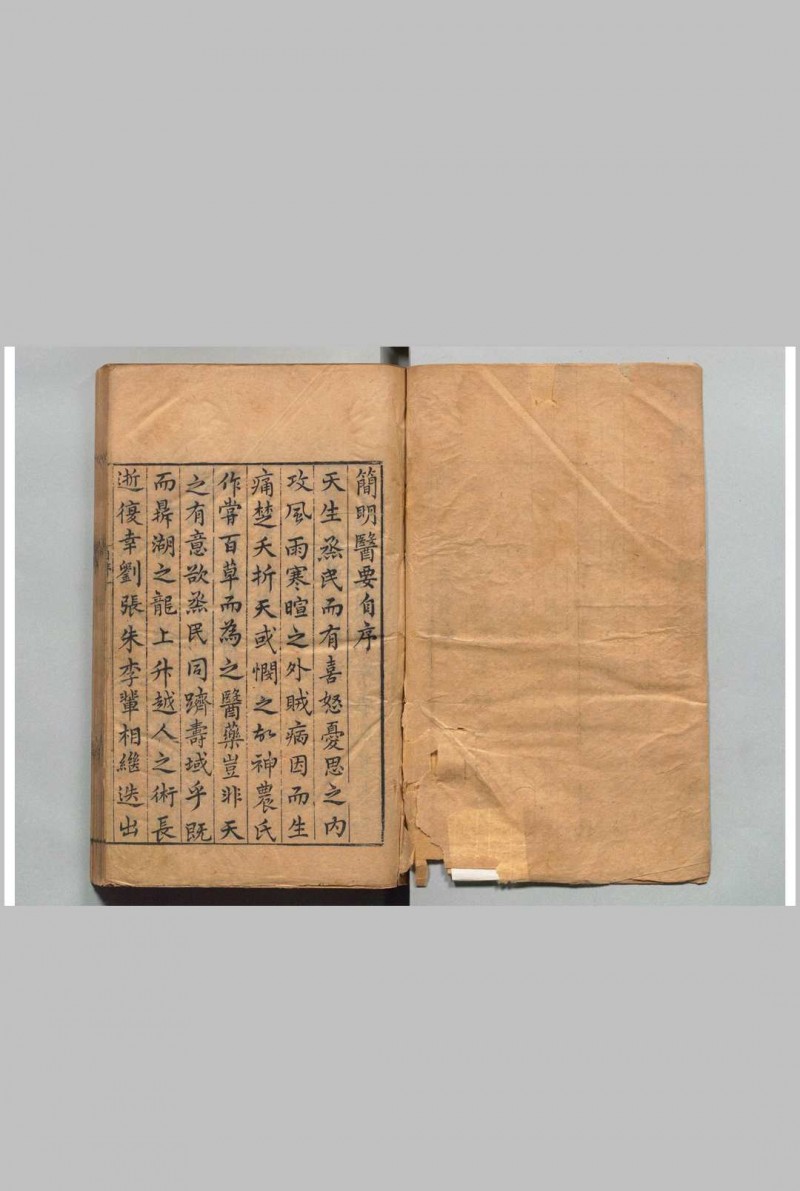 簡明醫要自序
天生烝民而有喜怒憂思之內
攻風雨寒暄之外賊病因而生
痛楚夭折天或憫之故神農氏
作嘗百草而為之醫藥豈非天
之有意欲烝民同躋壽域乎既
而鼎湖之龍上升越人之術長
逝復幸劉張朱李輩相繼迭出